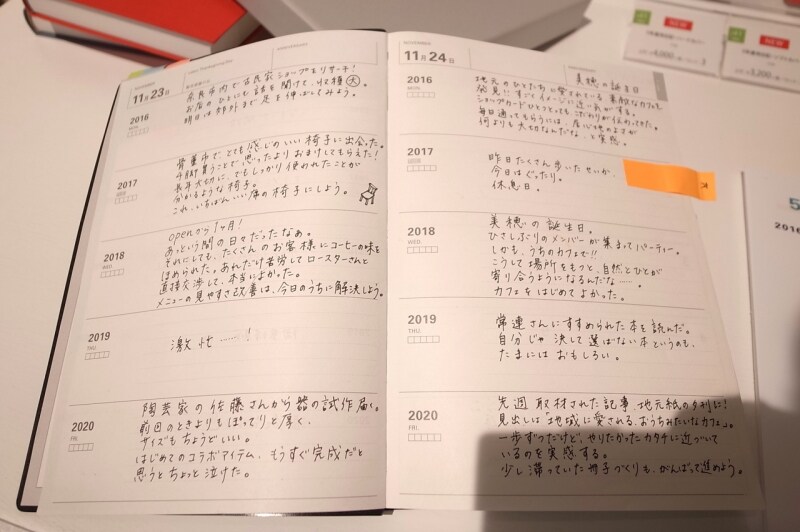 NOVEMBER
11月23日
2016
奈良市内で古民家ショップをリサーチ!
お店のひとにも話を聞けて、収穫大。
明日は郊外まで足を伸ばしてみよう。
2017
骨董市で、とても感じのいい椅子に出会った。
4脚買うことで思ったよりおまけしてもらえた!
長年大切に、でもしっかり使われたことが
分かるような椅子。
これ、いちばんいい席の椅子にしよう。
2018
WED
openから1ヶ月!
あっという間の日々だったなぁ。
それにしても、たくさんのお客様にコーヒーの味を
ほめられた。あれだけ苦労してロースターさんと
直接交渉して、本当によかった。
メニューの見やすさ改善は、今日のうちに解決しよう。
2019
THU
激忙……!
2020
FRI
陶芸家の佐藤さんから器の試作届く。
前回のときよりもぽってりと厚く、
サイズもちょうどいい。
はじめてのコラボアイテム、もうすぐ完成だと
思うとちょっと泣けた。
NOVEMBER
11月24日
美穂の誕生日
2016
地元のひとたちに愛されている素敵なカフェを
発見!!すごくイメージに近い気がする。
ショップカードひとつとっても、こだわりが伝わってきた。
毎日通ってもらうには、居心地のよさが
何よりも大切なんだな、と実感。
2017
昨日たくさん歩いたせいか、
今日はぐったり。
休息日。
2018
WED
美穂の誕生日。
ひさしぶりのメンバーが集まってパーティー。
しかも、うちのカフェで!!
こうして場所をもつと、自然とひとが
寄り合うようになるんだな……。
カフェをはじめてよかった。
2019
THU
常連さんにすすめられた本を読んだ。
自分じゃ決して選ばない本というのも、
たまにはおもしろい。
2020
FRI
先週取材された記事、地元紙の夕刊に!
見出しは「地域に愛される、おうちみたいなカフェ」。
一歩ずつだけど、やりたかったカタチに近づいて
いるのを実感する。
少し滞っていた冊子づくりも、がんばって進めよう。
NEW
NEW
2016